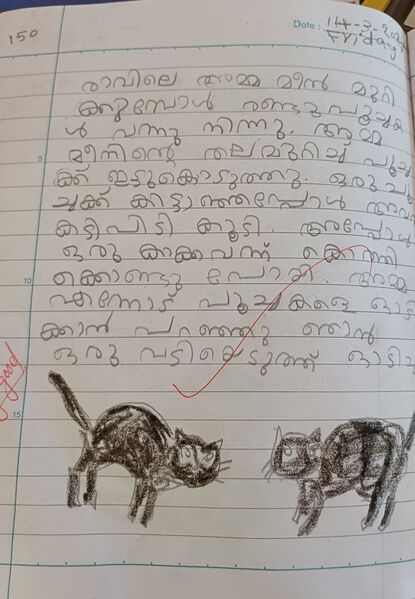 150
Date : 14-3-202
Friday
രാവിലെ അമ്മ മീൻ മുറി
ക്കുമ്പോൾ രണ്ടു പൂച്ചക
ൾ വന്നു നിന്നു. അമ്മ
5
മീനിൻ്റെ തല മുറിച്ച് പൂച്ച
ക്ക് ഇട്ടുകൊടുത്തു. ഒരു പൂ
ച്ചക്ക് കിട്ടാഞ്ഞപ്പോൾ അവ
കടിപിടി കൂടി. അപ്പോൾ
ഒരു കാക്ക വന്ന് കൊത്തി
10
ക്കൊണ്ടു പോയി. അമ്മ
എന്നോട് പൂച്ചകളെ ഓടി
ക്കാൻ പറഞ്ഞു ഞാൻ
ഒരു വടിയെടുത്ത് ഓടിച്ചു
good
15